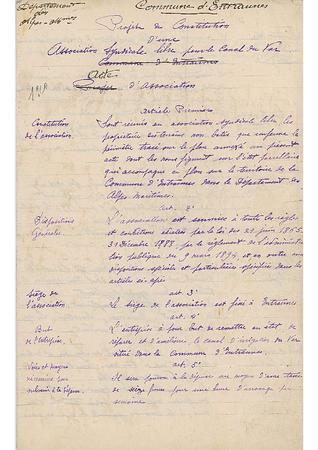 Département
des
Alpes-Maritimes
Commune d'Entraunes
Projet de Constitution
D'une
Association Syndicale libre pour le Canal du Var
Commune d'Entraunes
Acte
Projet d'Association
Article Premier
Constitution
de l'association.
Sont réunis en association syndicale libre les
propriétaires des terrains non bâtis que renferme le
périmètre tracé sur le plan annexé au présent
acte dont les noms figurent sur l'état parcellaire
qui accompagne ce plan sur le territoire de la
Commune d'Entraunes dans le Département des
Alpes-Maritimes.
art. 2e
Dispositions
Générales.
L'association est soumise à toutes les règles
et conditions édictées par la loi des 21 juin 1865
22 Décembre 1888 par le règlement de l'administra
tion publique du 9 mars 1894 et en outre aux
dispositions spéciales et particulières spécifiées dans les
articles ci-après
Siège de
l'association.
art. 3e
Le siège de l'association est fixé à Entraunes
art. 4e
But
de l'Entreprise.
L'entreprise a pour but de remettre en état de
réparer et d'améliorer le canal d'irrigation du Var
situé dans la Commune d'Entraunes.
art. 5e
Voies et moyens
Il sera pourvu à la dépense au moyen d'une taxe
de seize francs pour une heure d'arrosage par
semaine